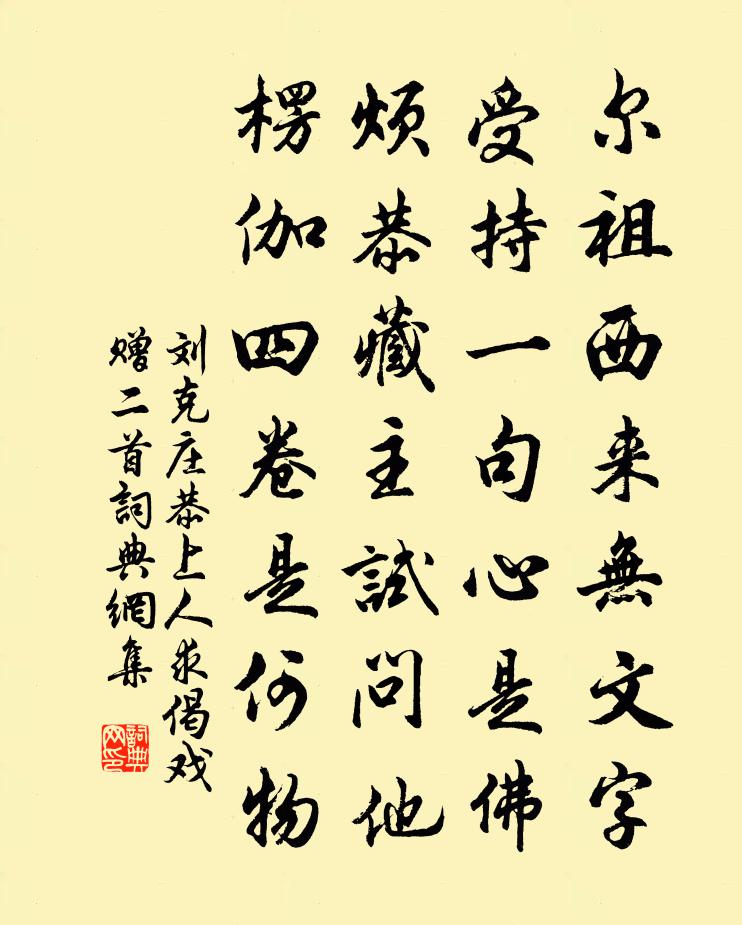 尔祖西来無文字
受持一句心是佛
烦恭藏主試問他
楞伽四卷是何物
刘克庄恭上人求偈戏
赠二首詞典網集
詞典网印